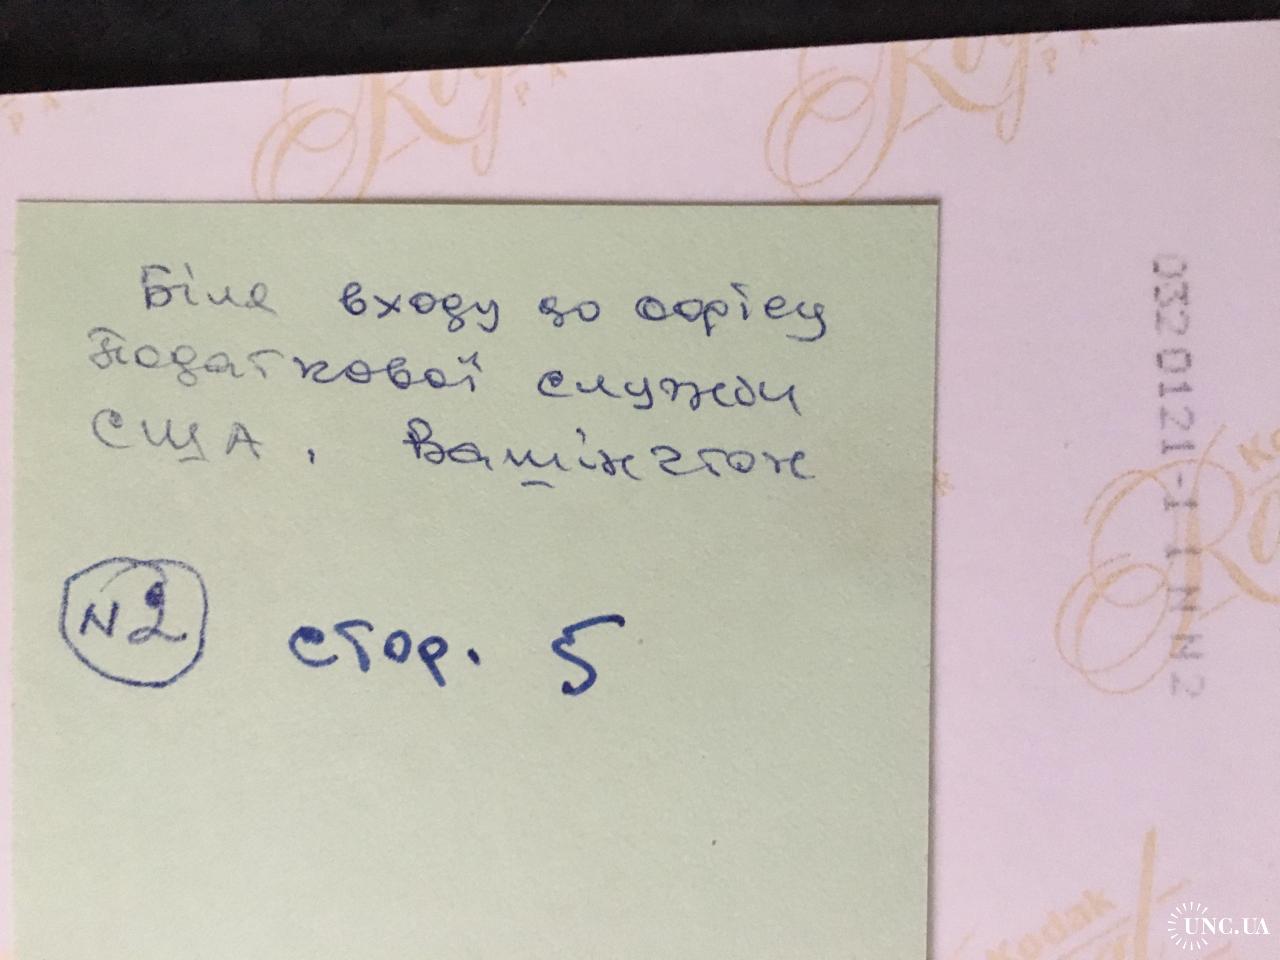 Біля входу до офісу
Податкової служби
США, Вашінгтон
N2 стор. 5
032 0121-1 1 N N 2
Kodak
Roy
UNC.UA